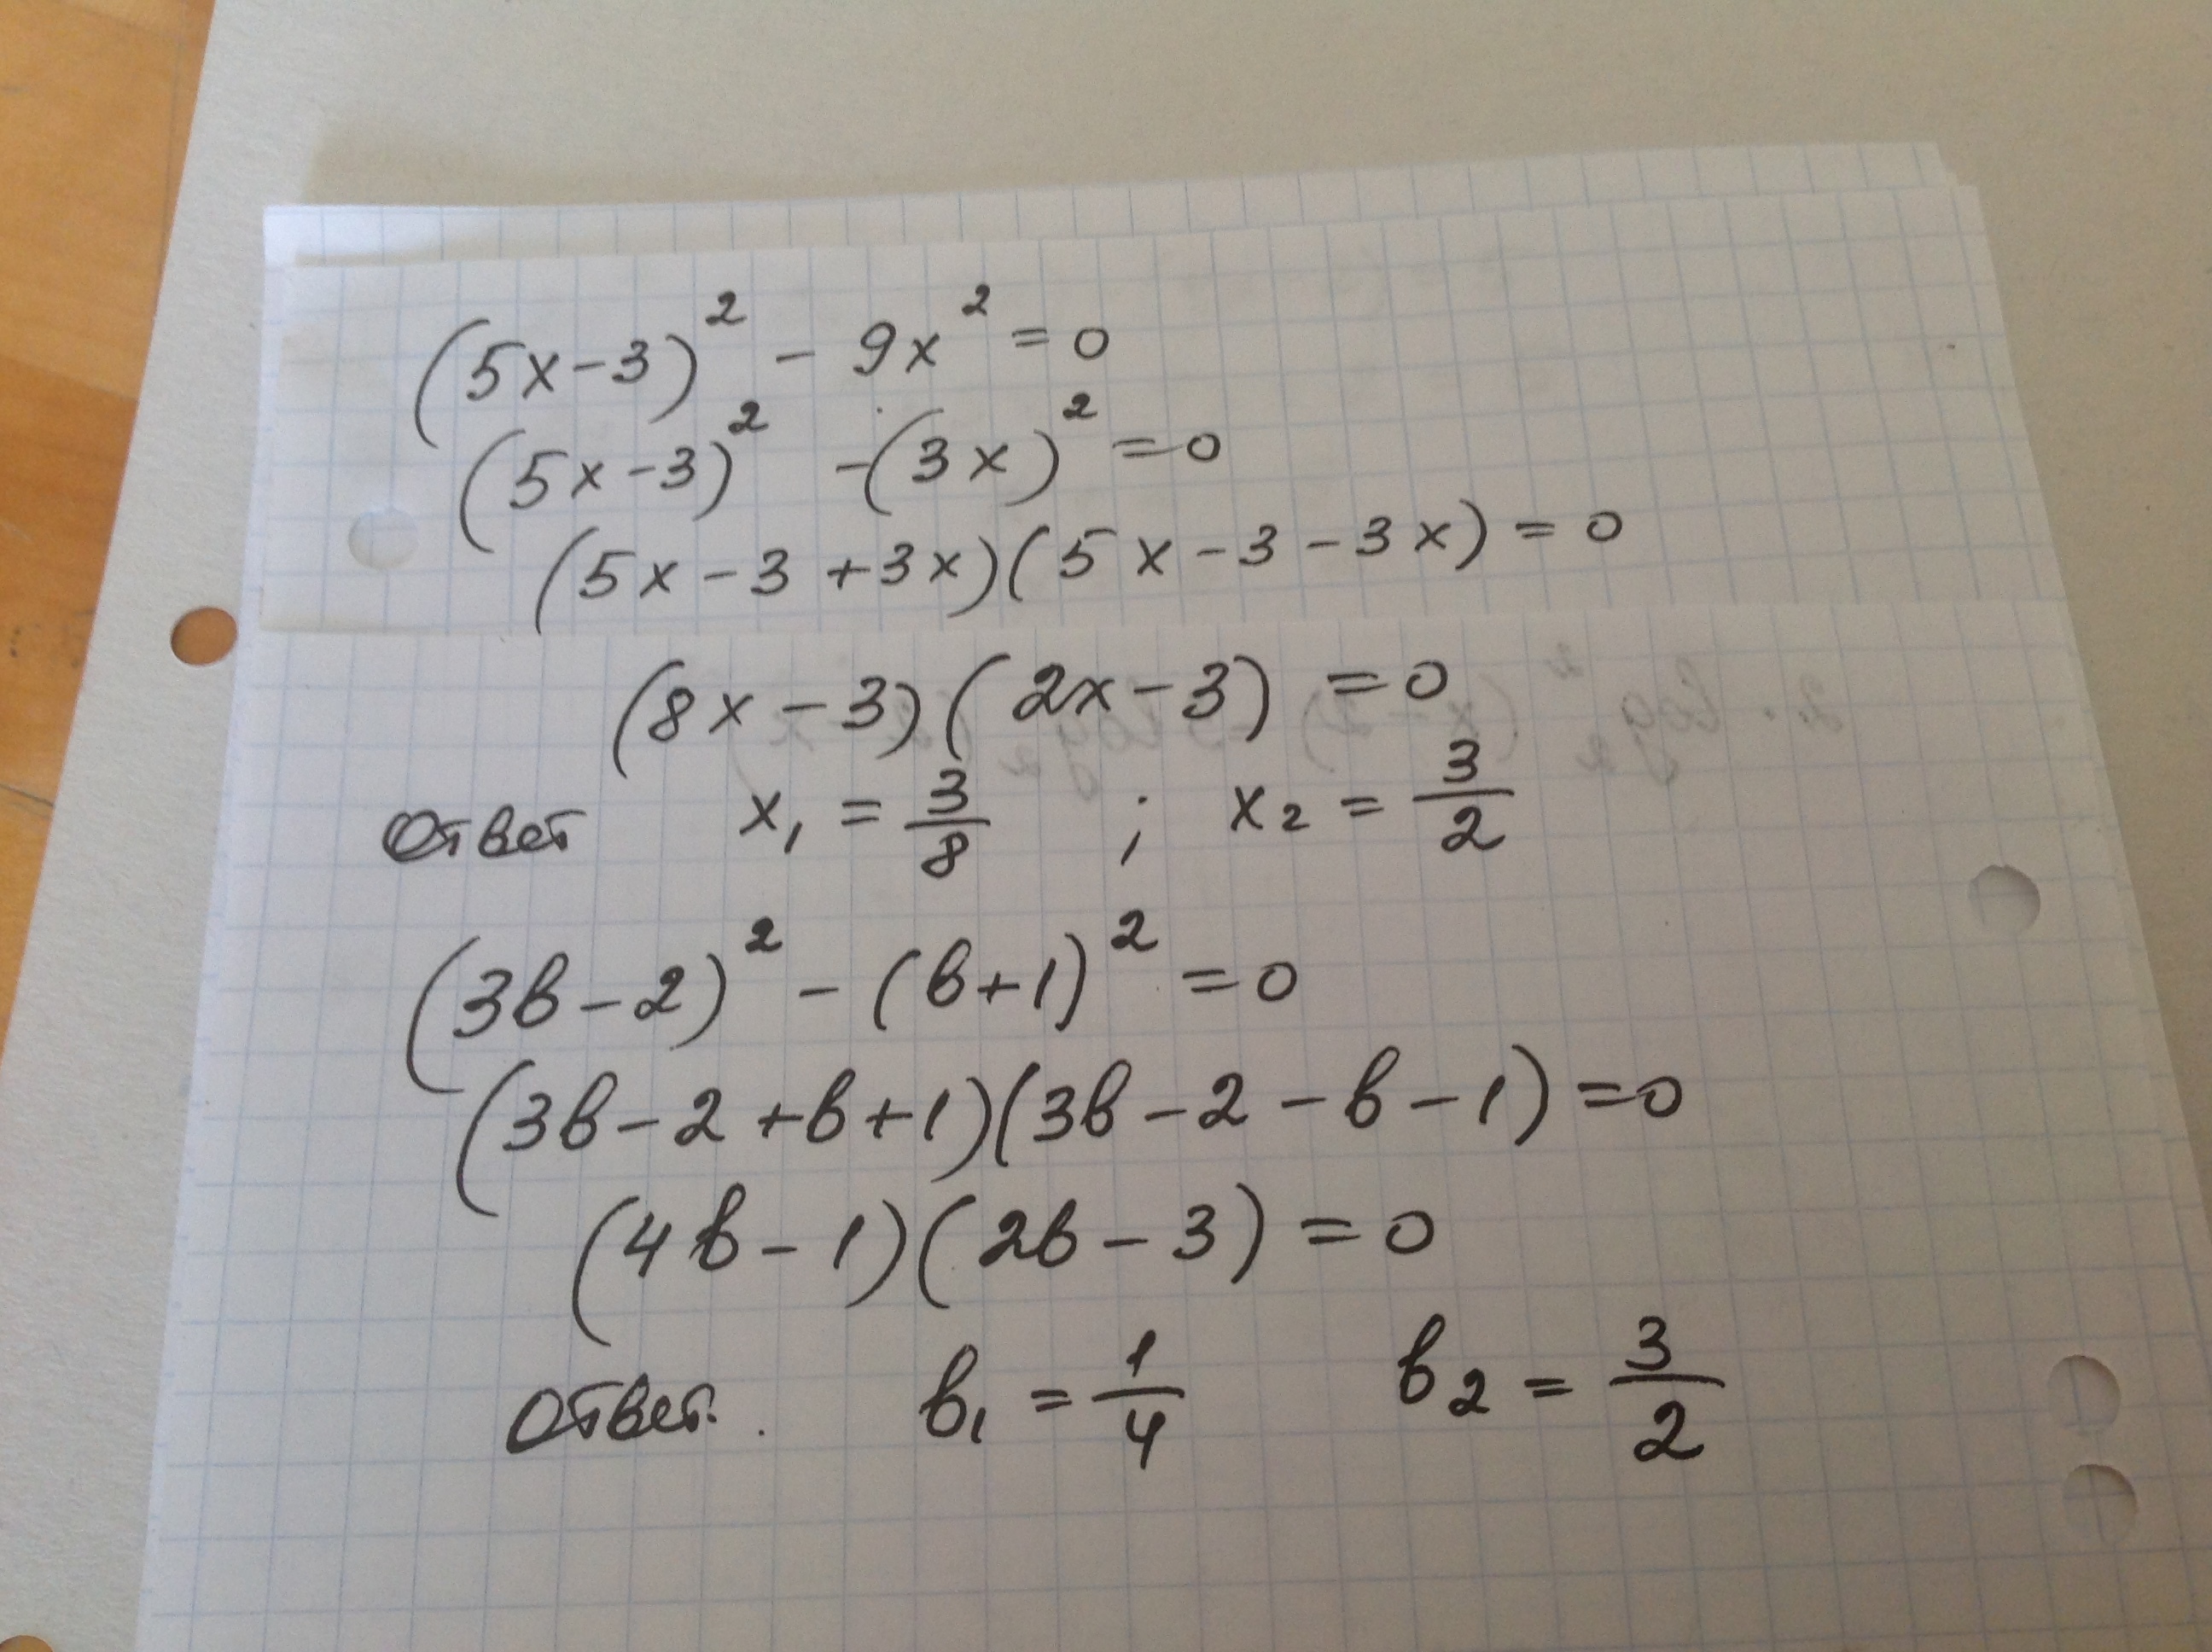 (5x-3)² - 9x² = 0
(5x-3)² -(3x)² = 0
(5x-3+3x)(5x-3-3x) = 0
(8x-3)(2x-3) = 0
Ответ x₁ = 3/8 ; x₂ = 3/2
(3в-2)² - (в+1)² = 0
(3в-2+в+1)(3в-2-в-1) = 0
(4в-1)(2в-3) = 0
Ответ. в₁ = 1/4 в₂ = 3/2